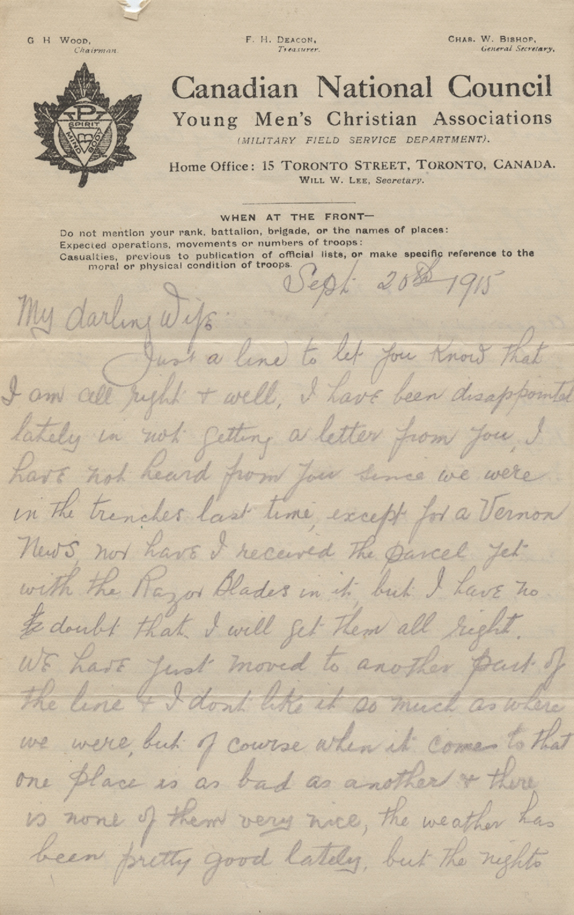 G H WOOD,
Chairman.
F. H. DEACON,
Treasurer.
CHAS. W. BISHOP,
General Secretary.
P
SPIRIT
MIND
BODY
Canadian National Council
Young Men's Christian Associations
(MILITARY FIELD SERVICE DEPARTMENT).
Home Office: 15 TORONTO STREET, TORONTO, CANADA.
WILL W. LEE, Secretary.
WHEN AT THE FRONT—
Do not mention your rank, battalion, brigade, or the names of places:
Expected operations, movements or numbers of troops:
Casualties, previous to publication of official lists, or make specific reference to the
moral or physical condition of troops.
Sept 20th 1915
My darling Wife
Just a line to let you know that
I am all right & well, I have been disappointed
lately in not getting a letter from you, I
have not heard from you since we were
in the trenches last time, except for a Vernon
News, nor have I received the parcel yet
with the Razor Blades in it, but I have no
doubt that I will get them all right.
We have just moved to another part of
the line & I dont like it so much as where
we were, but of course when it comes to that
one place is as bad as another & there
is none of them very nice, the weather has
been pretty good lately, but the nights